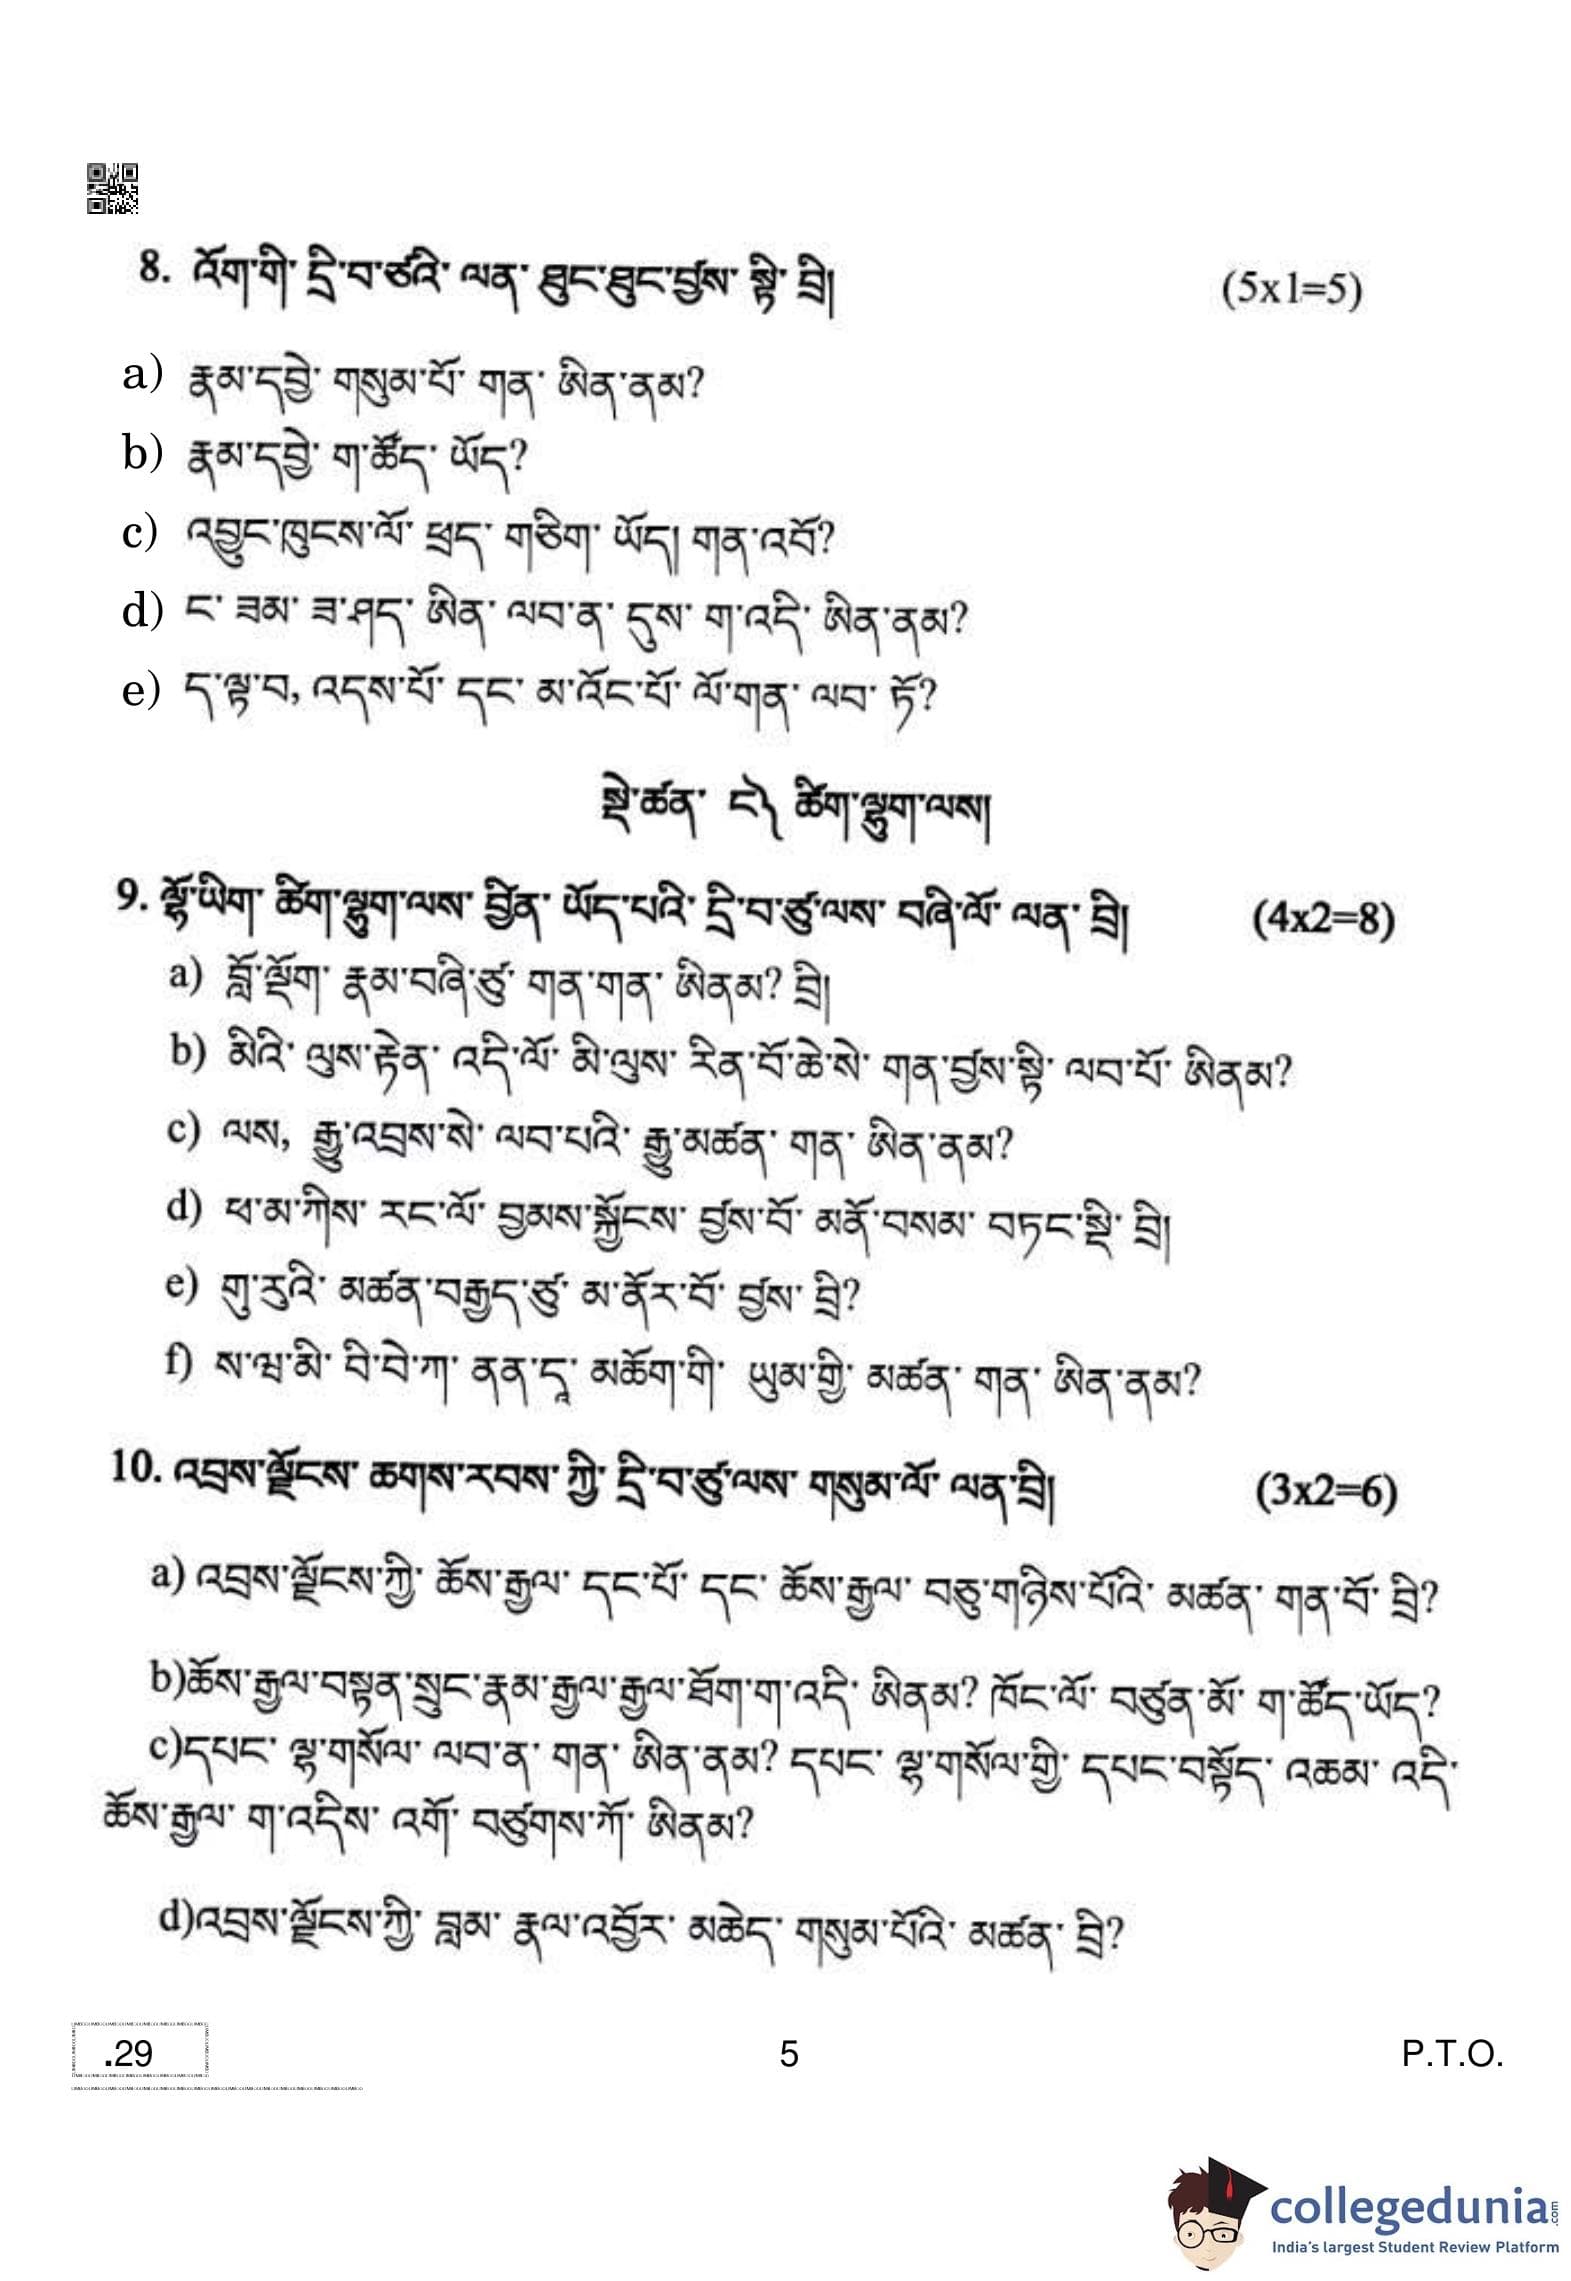 8. འོག་གི་ དྲི་བ་ཙའི་ ལན་ ཐུང་ཐུང་བྱས་ སྟི་ བྲི། (5x1=5)
a) རྣམ་དབྱེ་ གསུམ་པོ་ གན་ ཨིན་ནམ?
b) རྣམ་དབྱེ་ ག་ཚོད་ ཡོད?
c) འབྱུང་ཁུངས་ལོ་ ཕྲད་ གཅིག་ ཡོད། གན་འབོ?
d) ང་ ཟམ་ ཟ་ཤད་ ཨིན་ ལབ་ན་ དུས་ ག་འདི་ ཨིན་ནམ?
e) ད་ལྟ་བ, འདས་པོ་ དང་ མ་འོང་པོ་ ལོ་གན་ ལབ་ ཏོ?
སྡེ་ཚན་ ང༽ ཚིག་ལྷུག་ལས།
9. ལྷོ་ཡིག་ ཚིག་ལྷུག་ལས་ བྱིན་ ཡོད་པའི་ དྲི་བ་ཙུ་ལས་ བཞི་ལོ་ ལན་ བྲི། (4x2=8)
a) བློ་ལྡོག་ རྣམ་བཞི་ཙུ་ གན་གན་ ཨིནམ? བྲི།
b) མིའི་ ལུས་རྟེན་ འདི་ལོ་ མི་ལུས་ རིན་བོ་ཆེ་སེ་ གན་བྱས་སྟི་ ལབ་པོ་ ཨིནམ?
c) ལས, རྒྱུ་འབྲས་སེ་ ལབ་པའི་ རྒྱུ་མཚན་ གན་ ཨིན་ནམ?
d) ཕ་མ་ཀིས་ རང་ལོ་ བྱམས་སྐྱོངས་ བྱས་བོ་ མནོ་བསམ་ བཏང་སྡི་ བྲི།
e) གུ་རུའི་ མཚན་བརྒྱད་ཙུ་ མ་ནོར་བོ་ བྱས་ བྲི?
f) ས་ཝ་མི་ བི་བེ་ཀ་ ནན་དཱ་ མཆོག་གི་ ཡུམ་གྱི་ མཚན་ གན་ ཨིན་ནམ?
10. འབྲས་ལྗོངས་ ཆགས་རབས་ ཀྱི་ དྲི་བ་ཙུ་ལས་ གསུམ་ལོ་ ལན་བྲི། (3x2=6)
a) འབྲས་ལྗོངས་ཀྱི་ ཆོས་རྒྱལ་ དང་པོ་ དང་ ཆོས་རྒྱལ་ བཅུ་གཉིས་པོའི་ མཚན་ གན་བོ་ བྲི?
b)ཆོས་རྒྱལ་བསྟན་སྲུང་རྣམ་རྒྱལ་རྒྱལ་ཐོག་ག་འདི་ ཨིནམ? ཁོང་ལོ་ བཙུན་མོ་ ག་ཚོད་ཡོད?
c)དཔང་ ལྷ་གསོལ་ ལབ་ན་ གན་ ཨིན་ནམ? དཔང་ ལྷ་གསོལ་གྱི་ དཔང་བསྟོད་ འཆམ་ འདི་
ཆོས་རྒྱལ་ ག་འདིས་ འགོ་ བཙུགས་ཀོ་ ཨིནམ?
d)འབྲས་ལྗོངས་ཀྱི་ བླམ་ རྣལ་འབྱོར་ མཆེད་ གསུམ་པོའི་ མཚན་ བྲི?
.29 5 P.T.O.
collegedunia.com
India's largest Student Review Platform